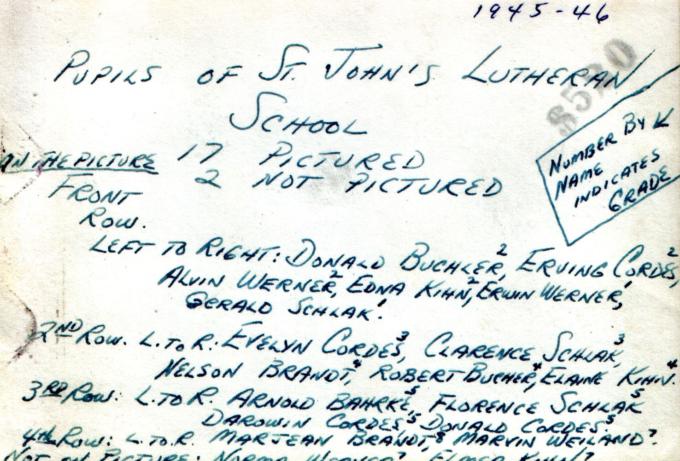 1945-46
PUPILS OF ST. JOHN'S LUTHERAN
SCHOOL
8520
NUMBER BY
NAME
INDICATES
GRADE
ON THE PICTURE 17 PICTURED
2 NOT PICTURED
FRONT
ROW.
LEFT TO RIGHT: DONALD BUCHLER,² ERVING CORDES,²
ALVIN WERNER,² EDNA KIHN,² ERWIN WERNER,¹
GERALD SCHLAK.¹
2ND ROW. L. TO R: EVELYN CORDES,³ CLARENCE SCHLAK,³
NELSON BRANDT,⁴ ROBERT BUCHER,⁴ ELAINE KIHN.⁴
3RD ROW: L. TO R. ARNOLD BAHRKE,⁵ FLORENCE SCHLAK⁵
DAROWIN CORDES,⁵ DONALD CORDES.⁵
4th ROW: L. TO R. MARJEAN BRANDT,⁸ MARVIN WEILAND.⁷
NOT ON PICTURE: NORMA WERNER ELMER KIHN